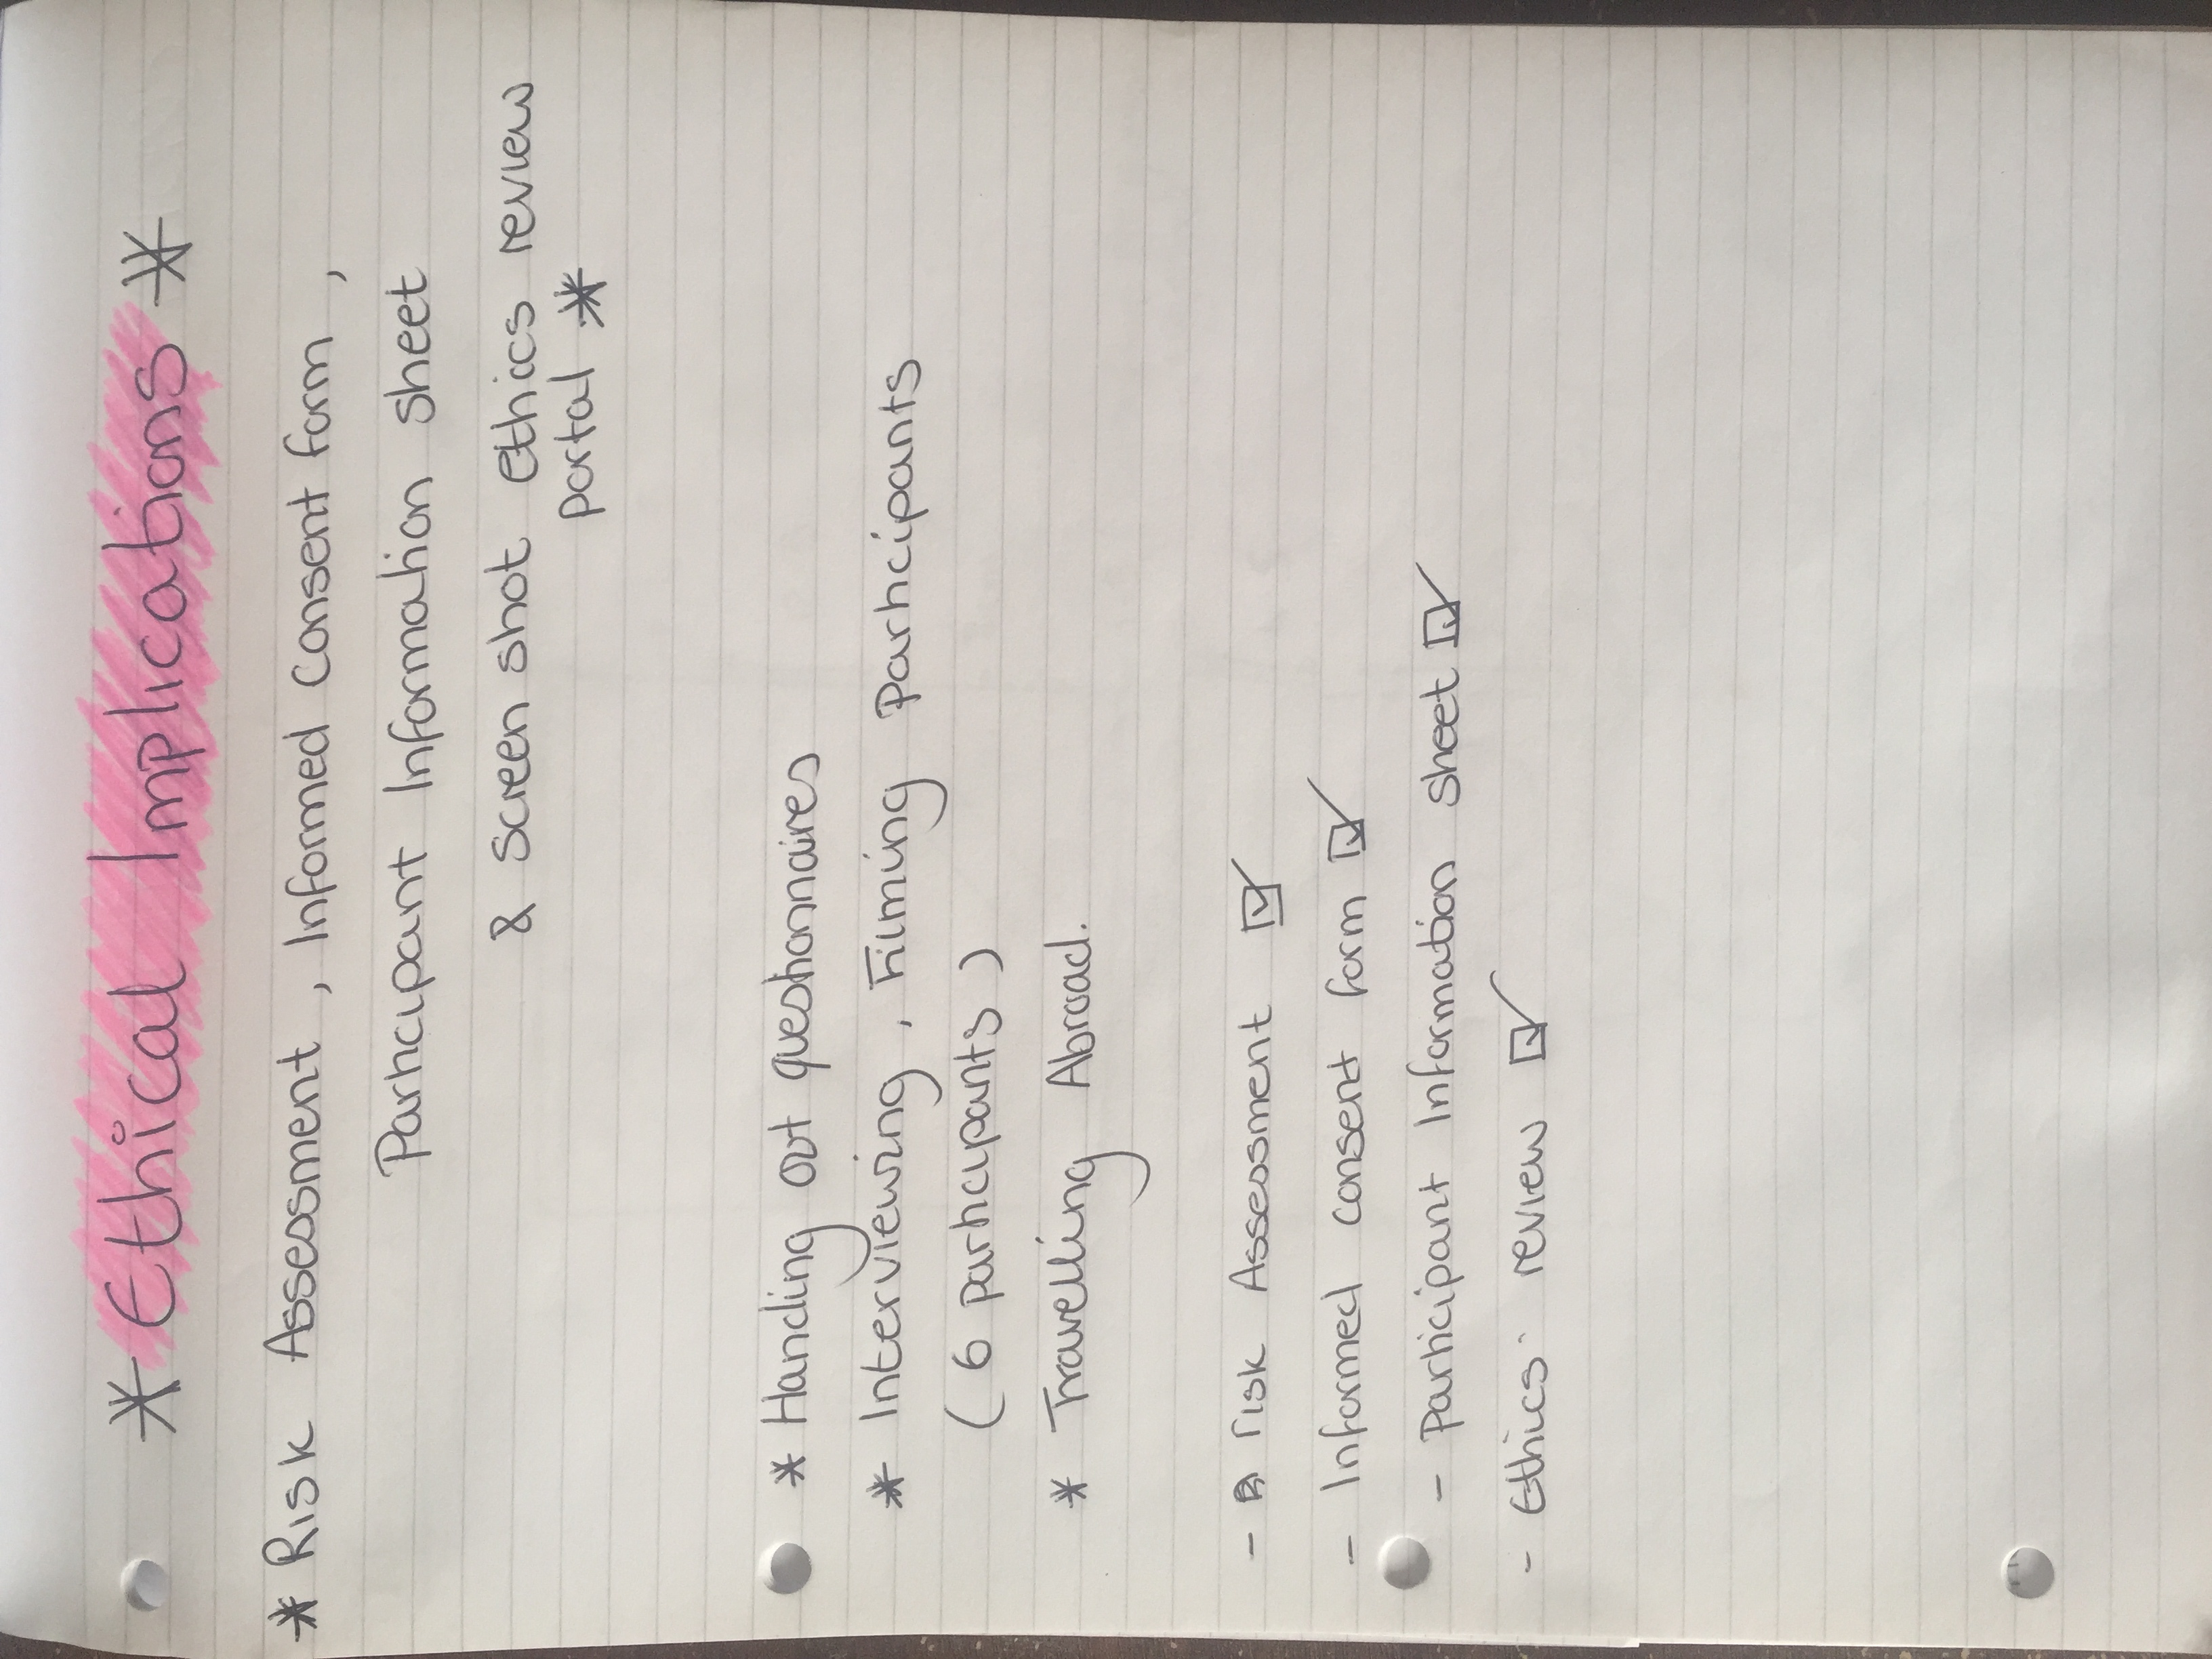 * Ethical Implications *
* Risk Assessment, Informed consent form,
Participant Information sheet
& Screen shot ethics review
portal *
* Handing out questionnaires
* Interviewing, Filming Participants
(6 participants)
* Travelling Abroad.
- risk Assessment ☑
- Informed consent form ☑
- Participant Information sheet ☑
- Ethics review ☑